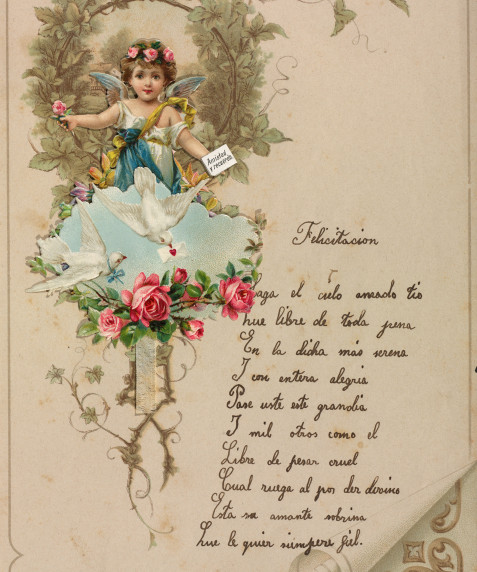 Amistad
y recuerdo
Felicitacion
aga el cielo amado tio
hue libre de toda pena
En la dicha más serena
I con entera alegria
Pase uste este grandia
I mil otros como el
Libre de pesar cruel
Cual ruega al por der divino
Esta su amante sobrina
hue le quier siempere fiel.